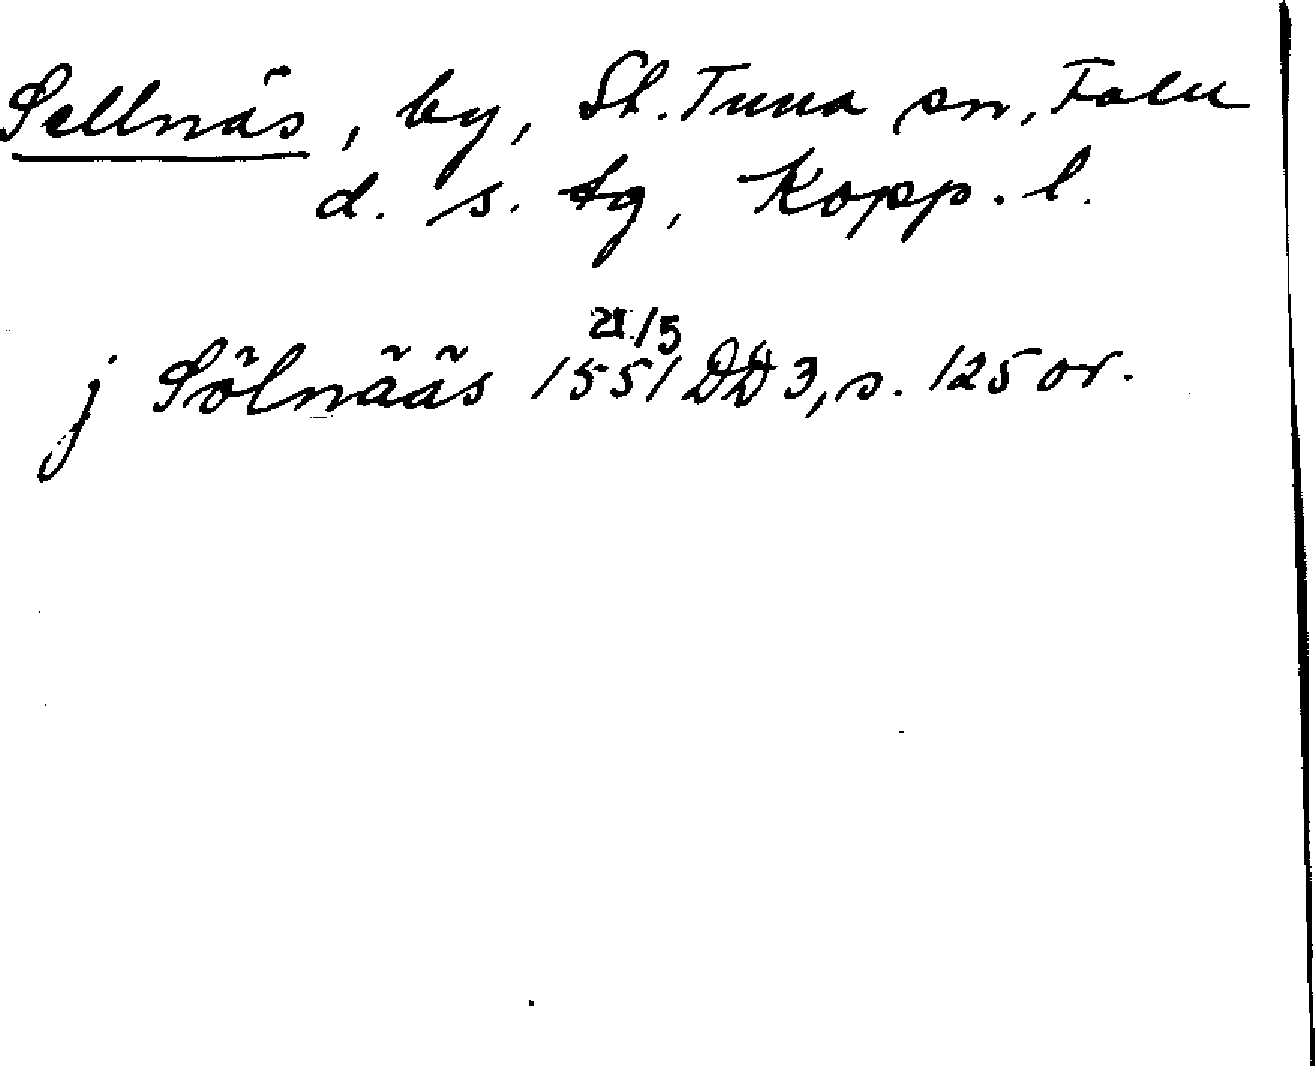 Sellnäs, by, St. Tuna sn, Falu
d. s. tg, Kopp. l.
21/5
j Sölnääs 1551 DD 3, s. 125 or.